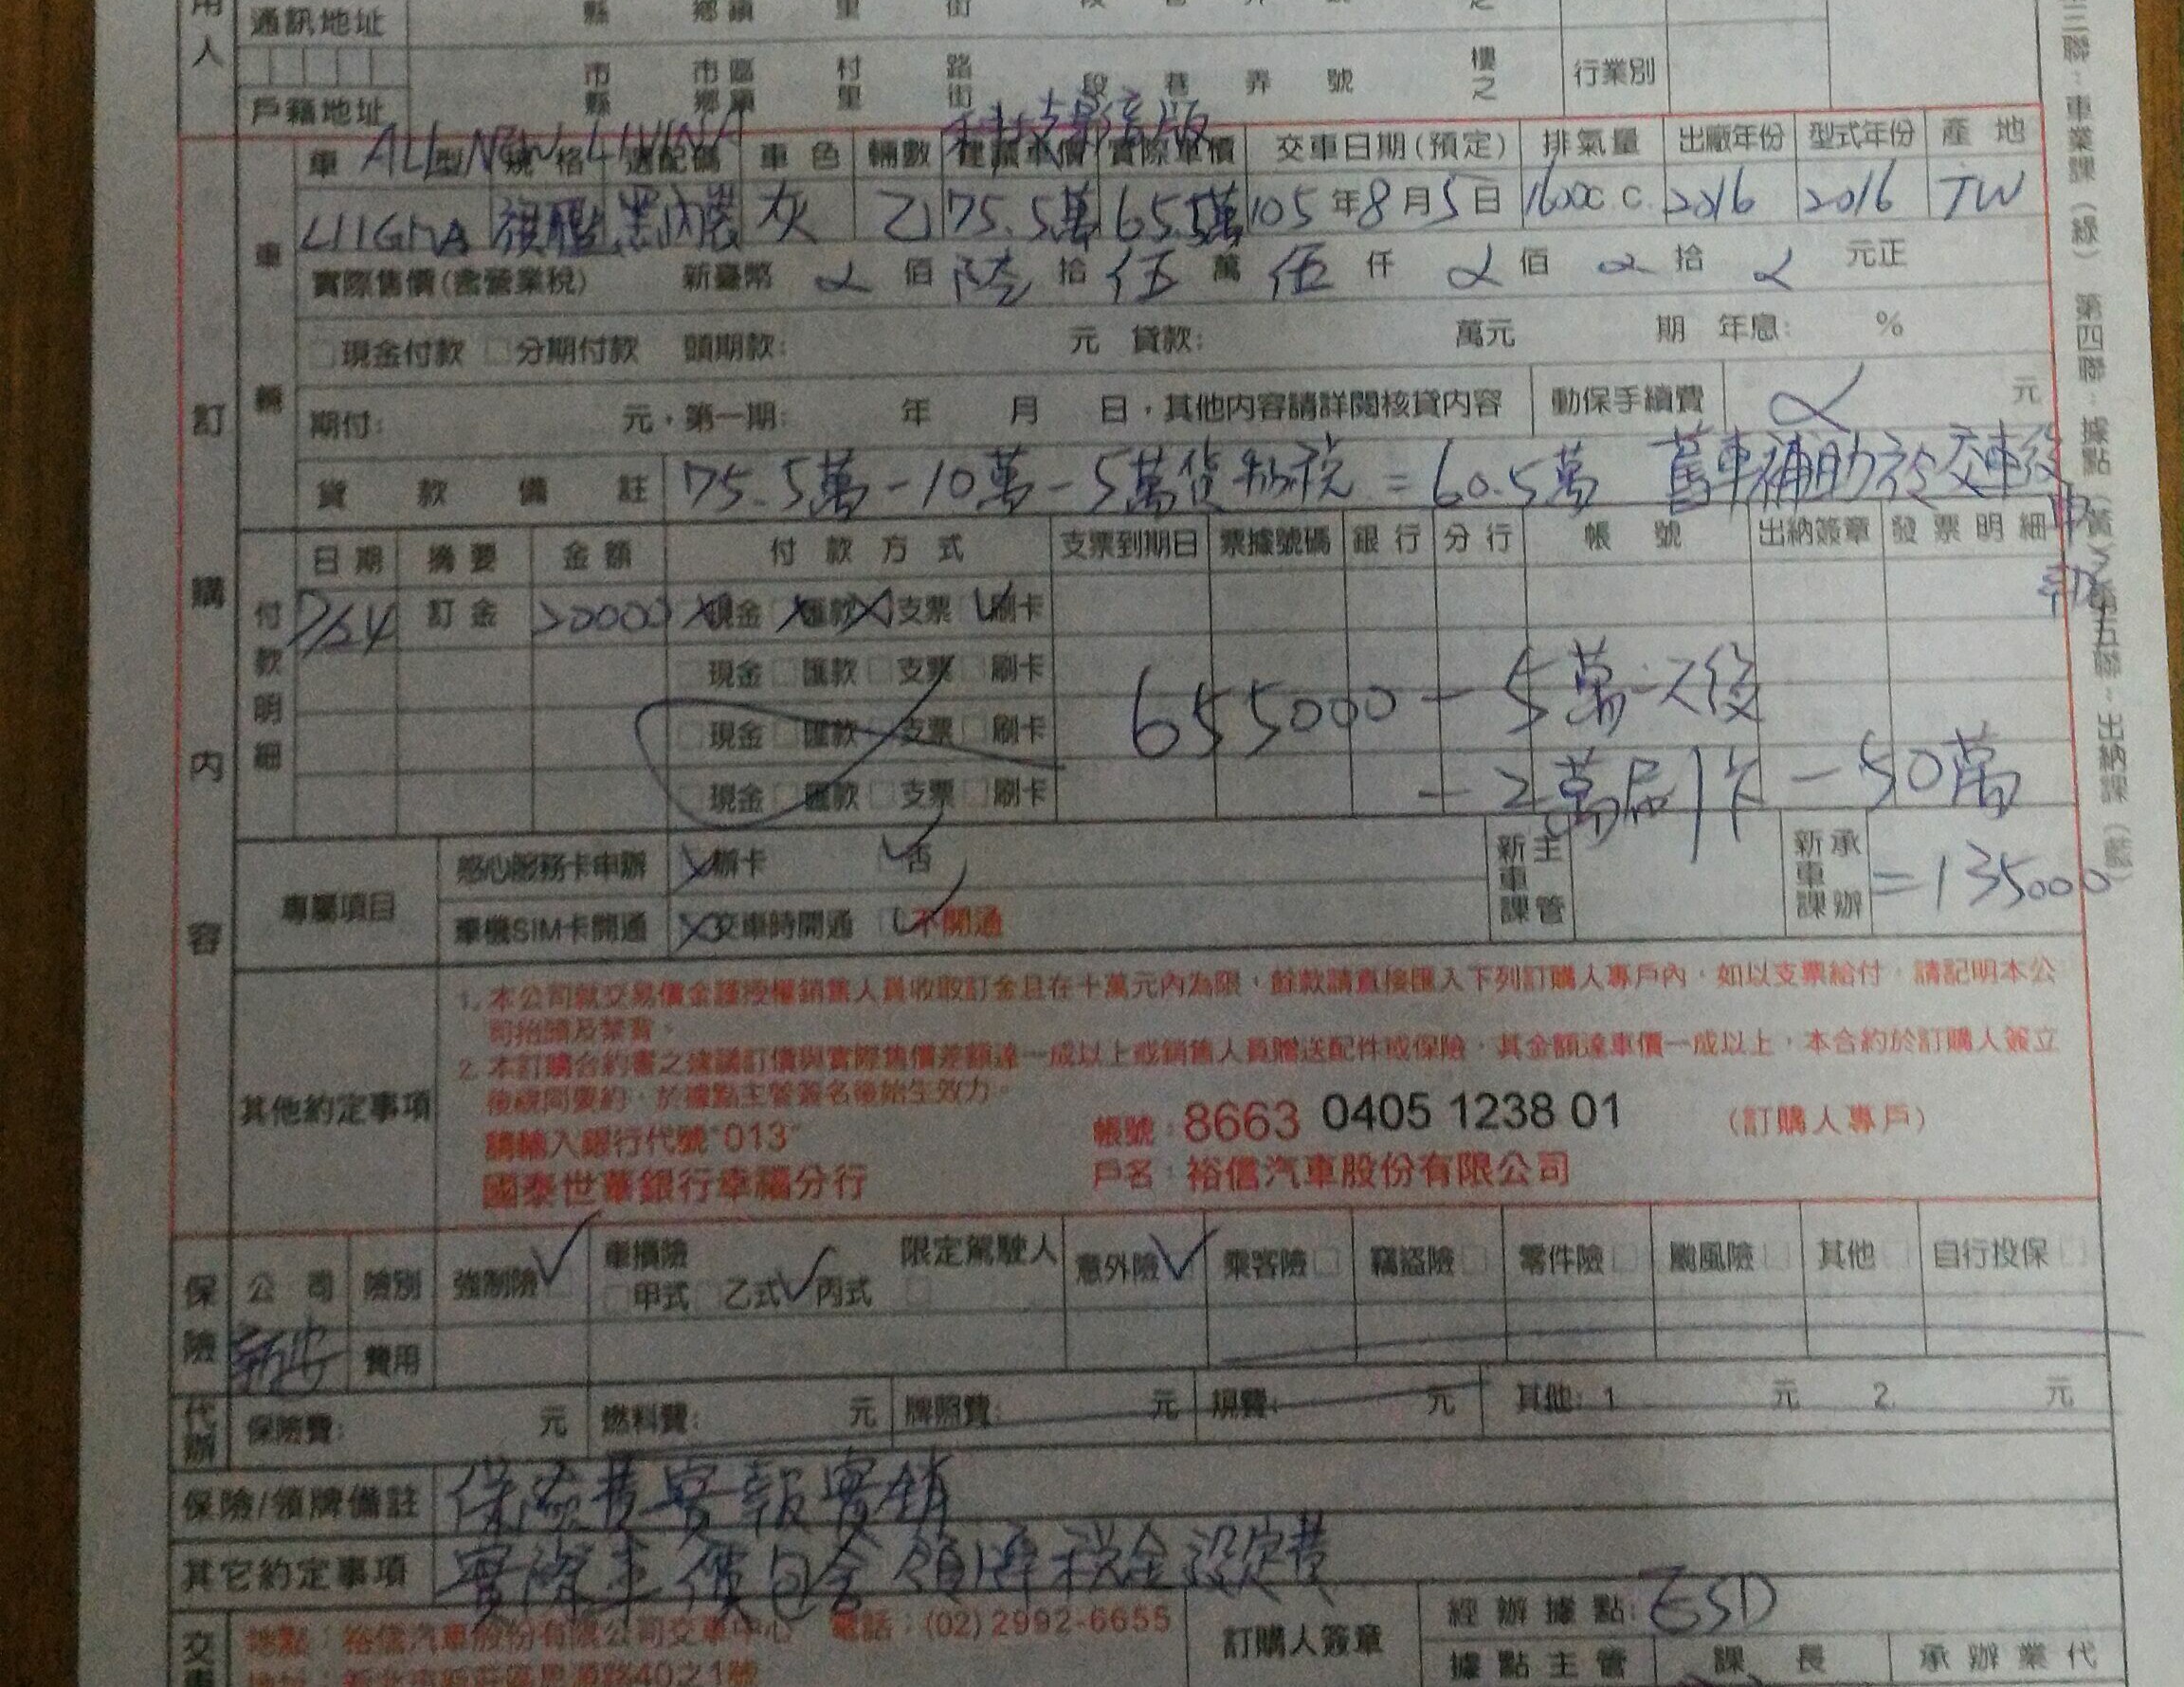 用人
通訊地址 縣 鄉鎮 里 街 段 巷 弄 號 之
市縣 市區鄉鎮 村里 路街 段 巷 弄 號 樓之 行業別
戶籍地址
ALL NEW LIVINA 科技影音版
車型 規格 選配碼 車色 輛數 建議車價 實際車價 交車日期(預定) 排氣量 出廠年份 型式年份 產地
旗艦 黑內裝 灰 乙 75.5萬 65.5萬 105年8月5日 1600C.C. 2016 2016 TW
實際售價(含營業稅) 新臺幣 α佰陸拾伍萬伍仟α佰α拾α元正
□現金付款 □分期付款 頭期款: 元 貸款: 萬元 期 年息: %
期付: 元,第一期: 年 月 日,其他內容請詳閱核貸內容 動保手續費 α 元
貸款備註 75.5萬-10萬-5萬貨物稅=60.5萬 舊車補助於交車後
車輛
訂購內容
付款明細
日期 摘要 金額 付款方式 支票到期日 票據號碼 銀行 分行 帳號 出納簽章 發票明細
7/24 訂金 20000 現金 匯款 支票 刷卡
□現金 □匯款 □支票 □刷卡
□現金 □匯款 □支票 □刷卡
□現金 □匯款 □支票 □刷卡
655000-5萬
-2萬刷卡-50萬
=135000
專屬項目 感心服務卡申辦 辦卡 否 新車課主管 新車課承辦
車機SIM卡開通 交車時開通 不開通
其他約定事項
1. 本公司就交易價金謹授權銷售人員收取訂金且在十萬元內為限,餘款請直接匯入下列訂購人專戶內,如以支票給付,請記明本公
司抬頭及禁背。
2. 本訂購合約書之建議訂價與實際售價差額達一成以上或銷售人員贈送配件或保險,其金額達車價一成以上,本合約於訂購人簽立
後視同要約,於據點主管簽名後始生效力。
請輸入銀行代號"013" 帳號:8663 0405 1238 01 (訂購人專戶)
國泰世華銀行幸福分行 戶名:裕信汽車股份有限公司
保險 公司 險別 強制險 車損險 □甲式 乙式 丙式 限定駕駛人 意外險 乘客險□ 竊盜險□ 零件險□ 颱風險□ 其他□ 自行投保□
新安 費用
代辦 保險費: 元 燃料費: 元 牌照費: 元 規費: 元 其他: 1. 元 2. 元
保險/領牌備註 保險費實報實銷
其它約定事項 實際車價包含領牌稅金設定費
地點:裕信汽車股份有限公司交車中心 電話:(02)2992-6655 訂購人簽章 經辦據點:ESD
據點主管 課長 承辦業代
三聯:車業課(綠) 第四聯:據點(黃) 第五聯:出納課(藍)